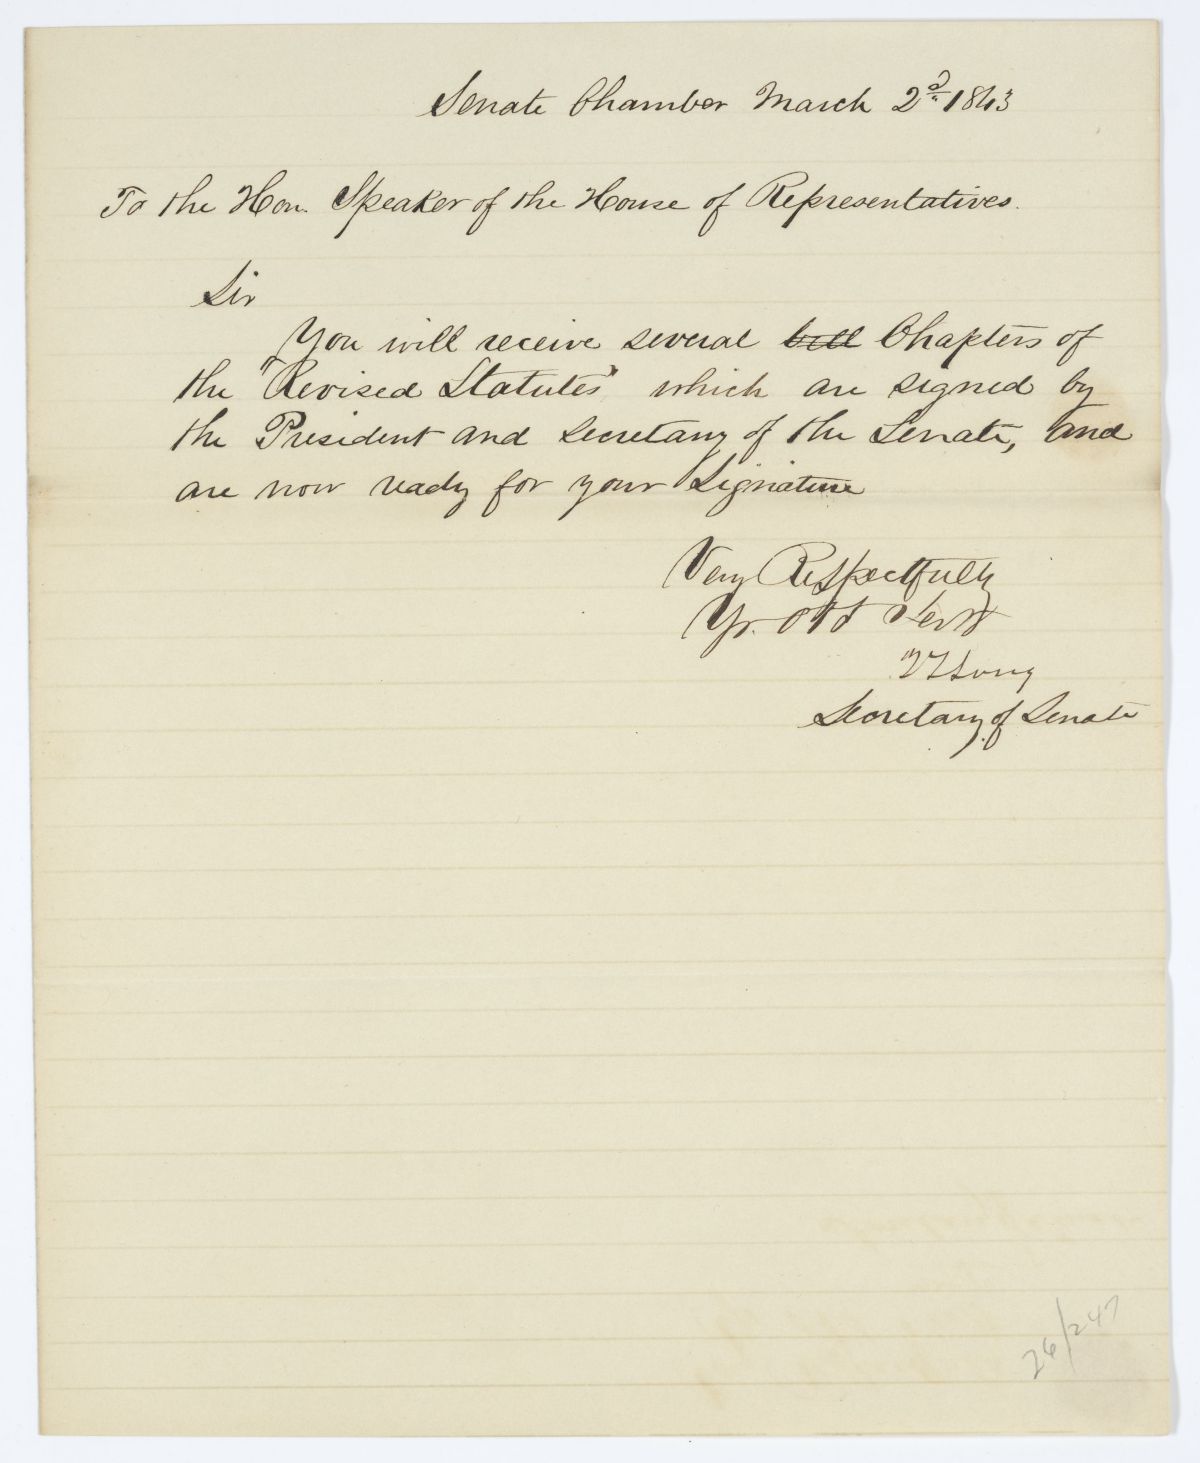 Senate Chamber March 2d 1843
To the Hon. Speaker of the House of Representatives.
Sir
You will receive several bill Chapters of
the "Revised Statutes" which are signed by
the President and Secretary of the Senate, and
are now ready for your Signature
Very Respectfully
Yr. Obt Servt
Long
Secretary of Senate
26/247